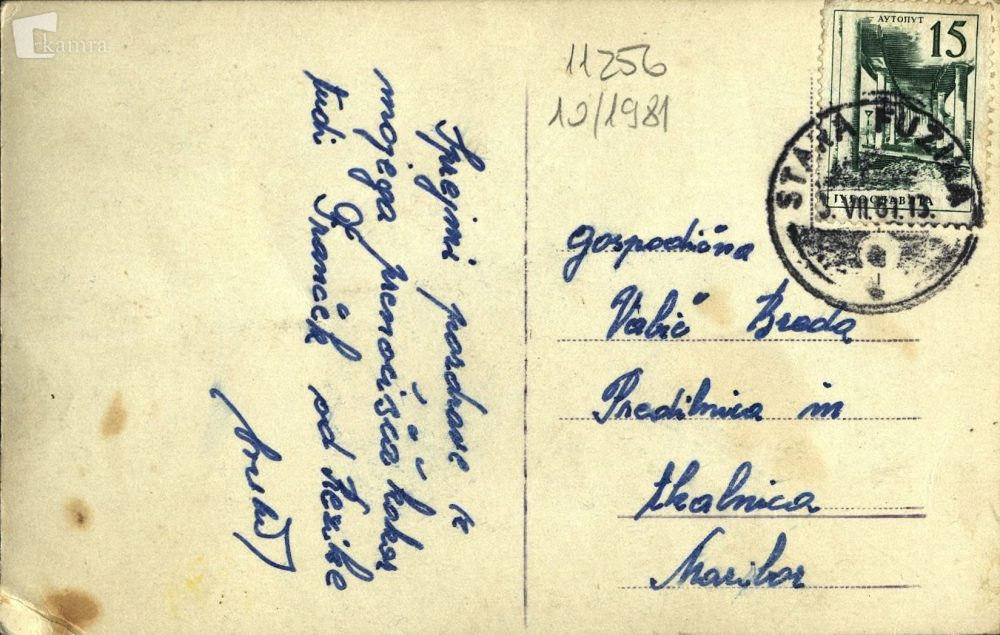 kamra
Sprejmi pozdrave iz
mojega prenočišča kakor
tudi Franček od Rezike
11256
10/1981
АУТОПУТ
15
ЈУГОСЛАВИЈА
STARA FUŽINA
VII.61.15.
Gospodična
Vabič Breda
Predilnica in
tkalnica
Maribor